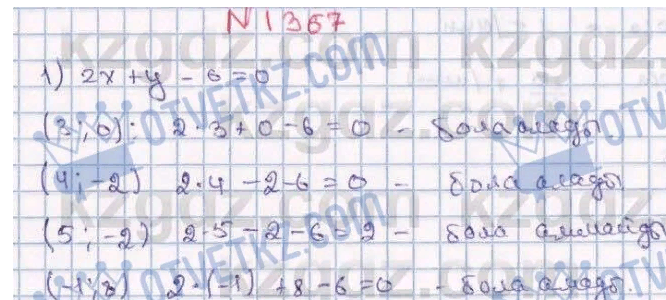 N 1367
1) 2x + y - 6 = 0
(3; 0): 2·3+0-6=0 - бола алады.
(4; -2) 2·4-2-6=0 - бола алады
(5; -2) 2·5-2-6=2 - бола алмайды
(-1; 8) 2·(-1)+8-6=0 - бола алады.
kzgdz.com kzgdz.com
OTVETKZ.COM